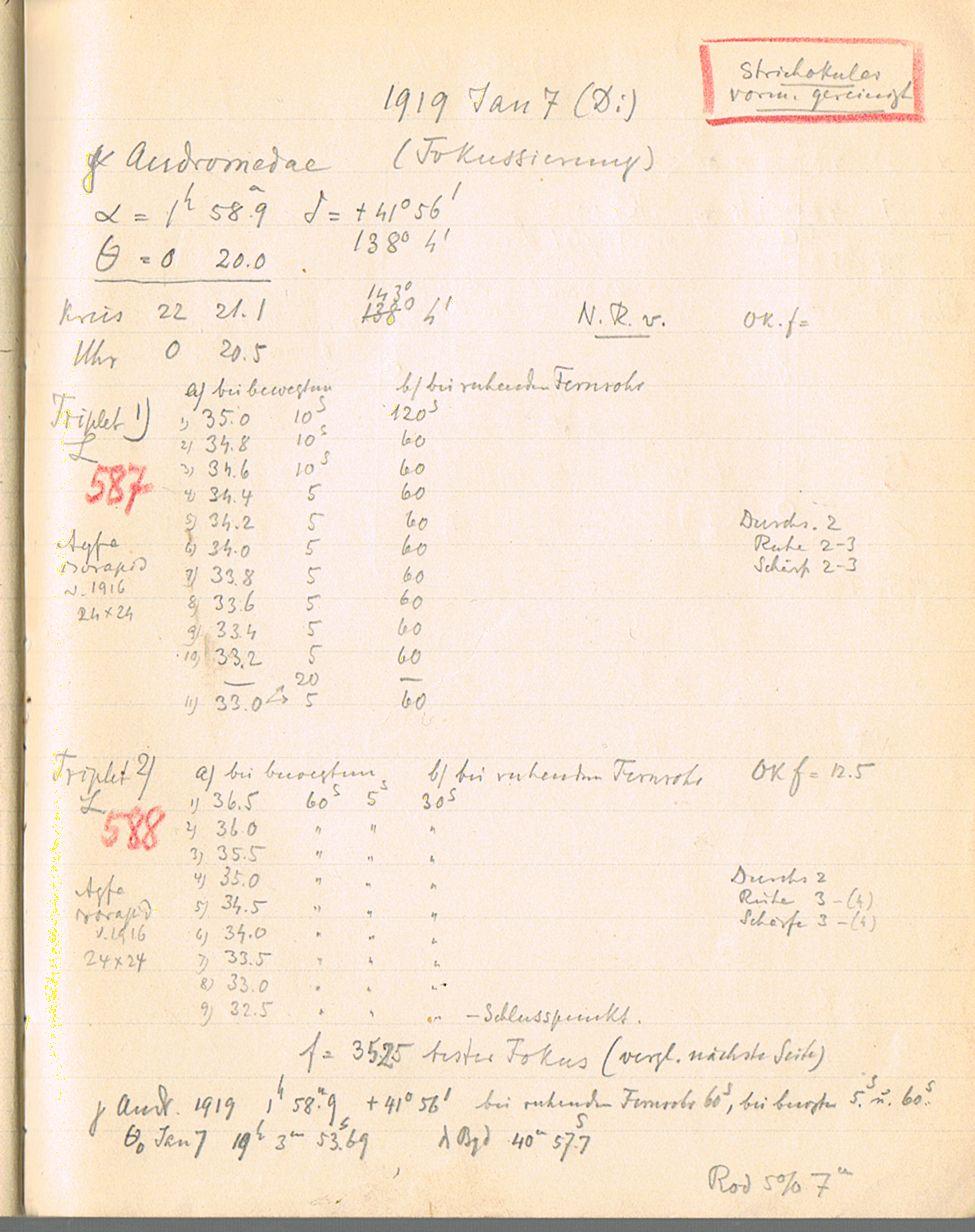 Strichokular
vorm. gereinigt
1919 Jan 7 (Di)
γ Andromedae (Fokussierung)
α = 1h 58m.9 δ = +41° 56'
138° 4'
θ = 0 20.0
143°
Kreis 22 21.1 138° 4' N.R.v. OK.f=
Uhr 0 20.5
a) bei bewegtem b) bei ruhendem Fernrohr
Triplet 1) 1) 35.0 10s 120s
L 2) 34.8 10s 60
587 3) 34.6 10s 60
4) 34.4 5 60
5) 34.2 5 60 Durchs. 2
Agfa 6) 34.0 5 60 Ruhe 2-3
Isorapid 7) 33.8 5 60 Schärfe 2-3
v. 1916 8) 33.6 5 60
24×24 9) 33.4 5 60
10) 33.2 5 60
— 20 —
11) 33.0 5 60
Triplet 2) a) bei bewegtem b) bei ruhendem Fernrohr OK f = 12.5
L 1) 36.5 60s 5s 30s
588 2) 36.0 " " "
3) 35.5 " " "
4) 35.0 " " " Durchs 2
Agfa 5) 34.5 " " " Ruhe 3-(4)
Isorapid 6) 34.0 " " " Schärfe 3-(4)
v. 1916 7) 33.5 " " "
24×24 8) 33.0 " " "
9) 32.5 " " " – Schlusspunkt.
f = 35.25 bester Fokus (vergl. nächste Seite)
γ Andr. 1919 1h 58m.9 +41° 56' bei ruhendem Fernrohr 60s, bei bewegtem 5s u. 60s.
θ0 Jan 7 19h 3m 53s.69 λ Bgd 40m 57s.7
Rod 5% 7m